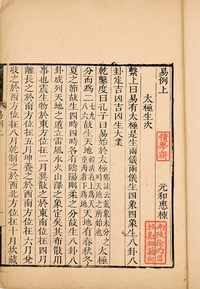 易例上
元和惠棟
太極生次
繫上曰易有太極是生兩儀兩儀生四象四象生八卦八
卦定吉凶吉凶生大業
乾鑿度曰孔子曰易始於太極
分而為二
故生天地
天地有春秋冬
夏之節故生四時四時各有陰陽剛柔之分故生八卦八
卦成列天地之道立雷風水火山澤之象定矣其布散用
事也震生物於東方位在二月巽散之於東南位在四月
離長之於南方位在五月坤養之於西南方位在六月兌
收之於西方位在八月乾制之於西北方位在十月坎藏